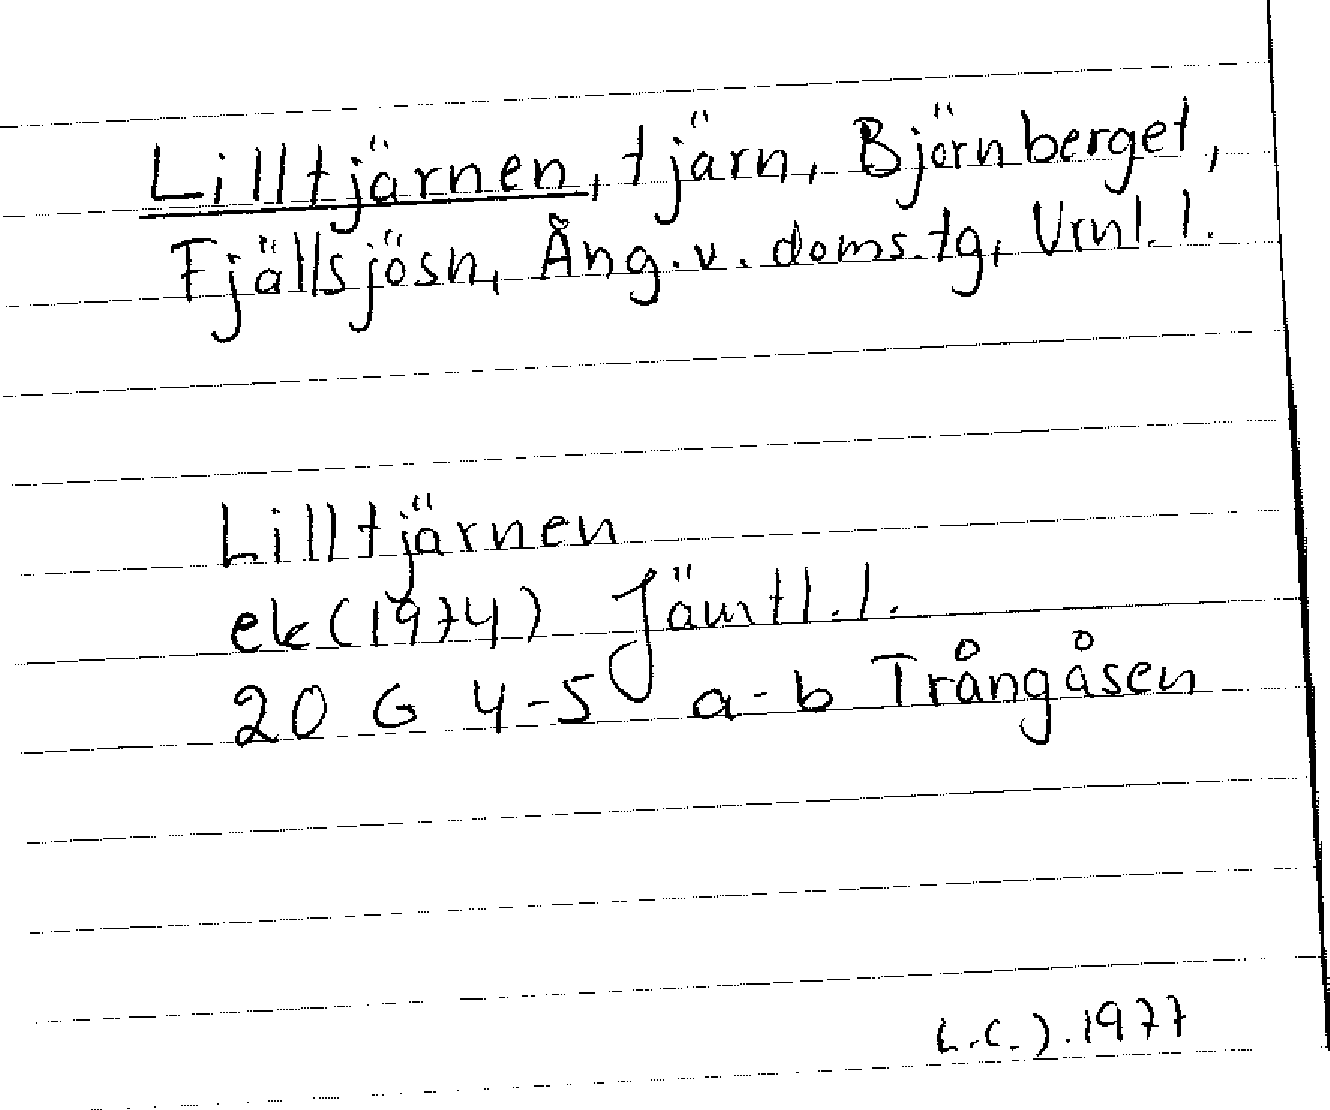 Lilltjärnen, tjärn, Björnberget,
Fjällsjösn, Ång.v. doms.tg, Vrnl.l.
Lilltjärnen
ek(1974) Jämtl.l.
20 G 4-5 a-b Trångåsen
L.C.J.1977